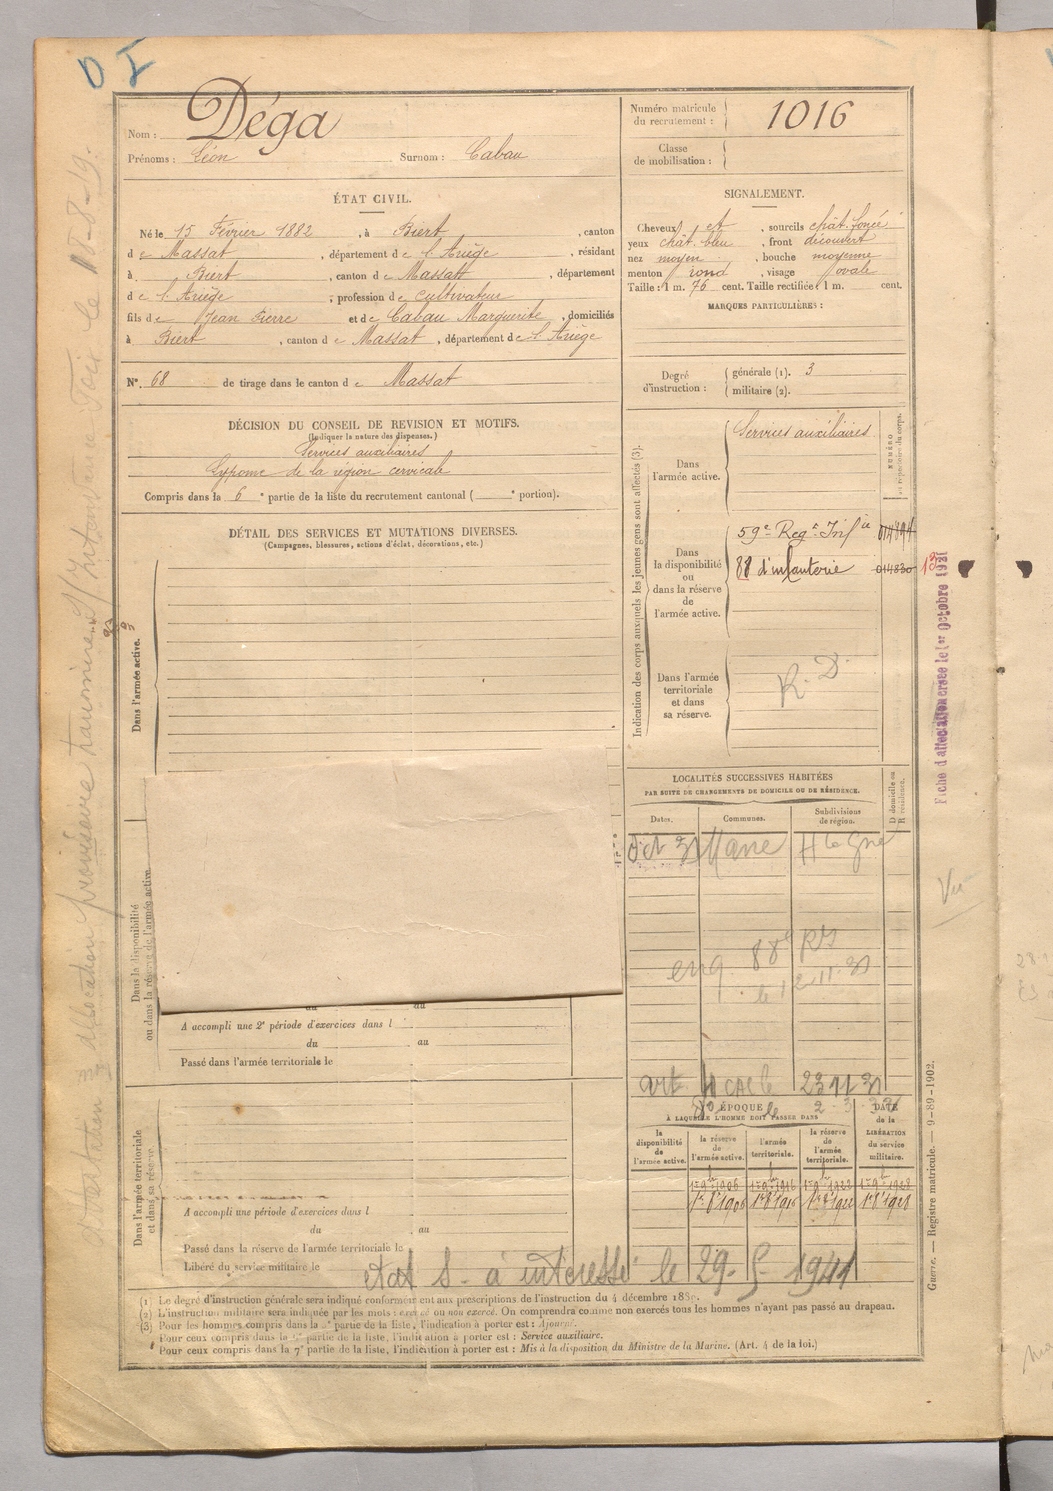 D I
Nom : Déga
Prénoms : Léon Surnom : Cabau
Numéro matricule du recrutement : 1016
Classe de mobilisation :
ÉTAT CIVIL.
Né le 15 Février 1882, à Biert, canton
de Massat, département de l'Ariège, résidant
à Biert, canton de Massatt, département
de l'Ariège, profession de cultivateur
fils de Jean Pierre et de Cabau Marguerite, domiciliés
à Biert, canton de Massat, département de l'Ariège
N°. 68 de tirage dans le canton de Massat
SIGNALEMENT.
Cheveux et, sourcils chât. foncé
yeux chât. bleu, front découvert
nez moyen, bouche moyenne
menton rond, visage ovale
Taille : 1 m. 76 cent. Taille rectifiée : 1 m. cent.
MARQUES PARTICULIÈRES :
Degré d'instruction : générale (1). 3
militaire (2).
DÉCISION DU CONSEIL DE REVISION ET MOTIFS.
(Indiquer la nature des dispenses.)
Services auxiliaires
Lypome de la région cervicale
Compris dans la 6e partie de la liste du recrutement cantonal ( e portion).
DÉTAIL DES SERVICES ET MUTATIONS DIVERSES.
(Campagnes, blessures, actions d'éclat, décorations, etc.)
Dans l'armée active.
Dans la disponibilité
ou dans la réserve de l'armée active
au
A accompli une 2e période d'exercices dans l
du au
Passé dans l'armée territoriale le
Dans l'armée territoriale
et dans sa réserve.
A accompli une période d'exercices dans l
du au
Passé dans la réserve de l'armée territoriale le
Libéré du service militaire le
Etat S. à intéressé le 29-5-1941
Indication des corps auxquels les jeunes gens sont affectés (3).
NUMÉRO
au répertoire du corps.
Dans l'armée active.
Services auxiliaires
Dans la disponibilité ou dans la réserve de l'armée active.
59e Regt Infie
88 d'infanterie 014830
13
Dans l'armée territoriale et dans sa réserve.
R. D.
LOCALITÉS SUCCESSIVES HABITÉES
PAR SUITE DE CHANGEMENTS DE DOMICILE OU DE RÉSIDENCE.
Dates. Communes. Subdivisions de région. D domicile ou R résidence.
Oct 31 Mane Hte Gne
88e
le 12 11 31
23 11 31
ÉPOQUE
À LAQUELLE L'HOMME DOIT PASSER DANS
DATE de la LIBÉRATION du service militaire.
la disponibilité de l'armée active.
la réserve de l'armée active.
l'armée territoriale.
la réserve de l'armée territoriale.
1er 9bre 1906 1er 9bre 1916 1er 9bre 1922 1er 9bre 1928
1er 8bre 1906 1er 8bre 1916 1er 8bre 1922 1er 8bre 1928
(1) Le degré d'instruction générale sera indiqué conformément aux prescriptions de l'instruction du 4 décembre 1889.
(2) L'instruction militaire sera indiquée par les mots : exercé ou non exercé. On comprendra comme non exercés tous les hommes n'ayant pas passé au drapeau.
(3) Pour les hommes compris dans la 5e partie de la liste, l'indication à porter est : Ajourné.
Pour ceux compris dans la 6e partie de la liste, l'indication à porter est : Service auxiliaire.
Pour ceux compris dans la 7e partie de la liste, l'indication à porter est : Mis à la disposition du Ministre de la Marine. (Art. 4 de la loi.)
Guerre. — Registre matricule. — 9-89-1902.
Fiche d'affectation versée le 1er Octobre 1931
Vu
allocation provisoire